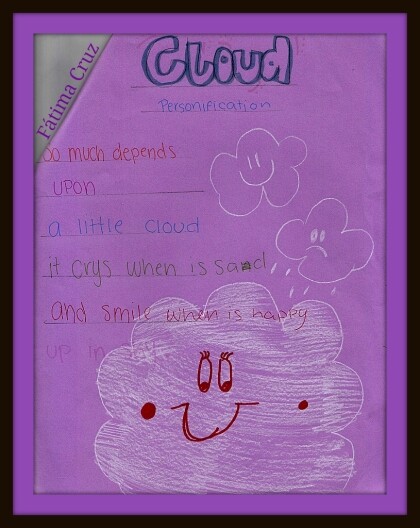 Fátima Cruz
Cloud
Personification
So much depends
upon
a little cloud
it crys when is sad
and smile when is happy
up in